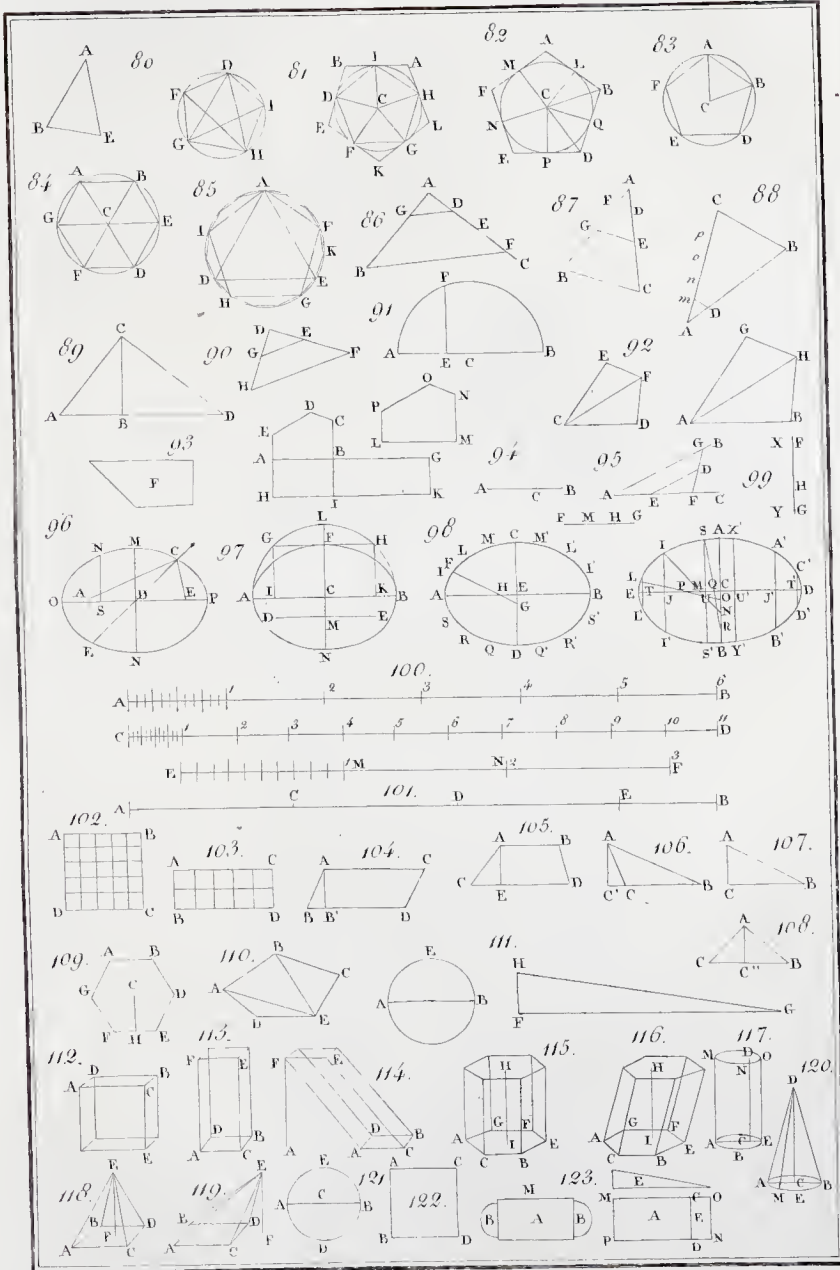 80
A
B
E
D
F
I
G
H
81
B I A
D C H
E L
F G
K
82
A
M L
F C B
N Q
E P D
83
A
F B
C
E D
84
A B
G C E
F D
85
A
I F
K
D E
H G
86
A
G D
E
F
B C
87
A
F D
G
E
B
C
88
C
p B
o
n
m
D
A
89
C
A B D
90
D E
G F
H
91
F
A E C B
92
E
F
C D
G
H
A B
93
F
D C
E
A B G
H I K
O
P N
L M
94
A C B
95
G B
D
A E F C
F M H G
99
X F
H
Y G
96
N M C
O A S D E P
E N
97
L
G F H
A I C K B
D M E
N
98
L M C M' L'
I F I'
A H E B
G
S S'
R Q D Q' R'
S A X'
I A'
L C'
E T P M Q C T' D
J U O U' J'
L' N D'
R
I' S' B Y' B'
100.
A 1 2 3 4 5 6 B
C 1 2 3 4 5 6 7 8 9 10 11 D
E 1 M N 2 3 F
101.
A C D E B
102.
A B
D C
103.
A C
B D
104.
A C
B B' D
105.
A B
C E D
106.
A
C' C B
107.
A
C B
108.
A
C C'' B
109.
A B
G C D
F H E
110.
B
A C
D E
E
A B
111.
H
F G
112.
D B
A C
E E
113.
F E
D B
A C
114.
F E
D B
A A C
115.
H
G F
A I E
C B
116.
H
G F
A I E
C B
117.
M D O
N
A C E
B
120.
D
A C B
M E
118.
E
B D
F
A C
119.
E
B D
A C F
121
E
A C B
D
122.
A C
B D
123.
M
B A B
E
M C O
A E
P D N